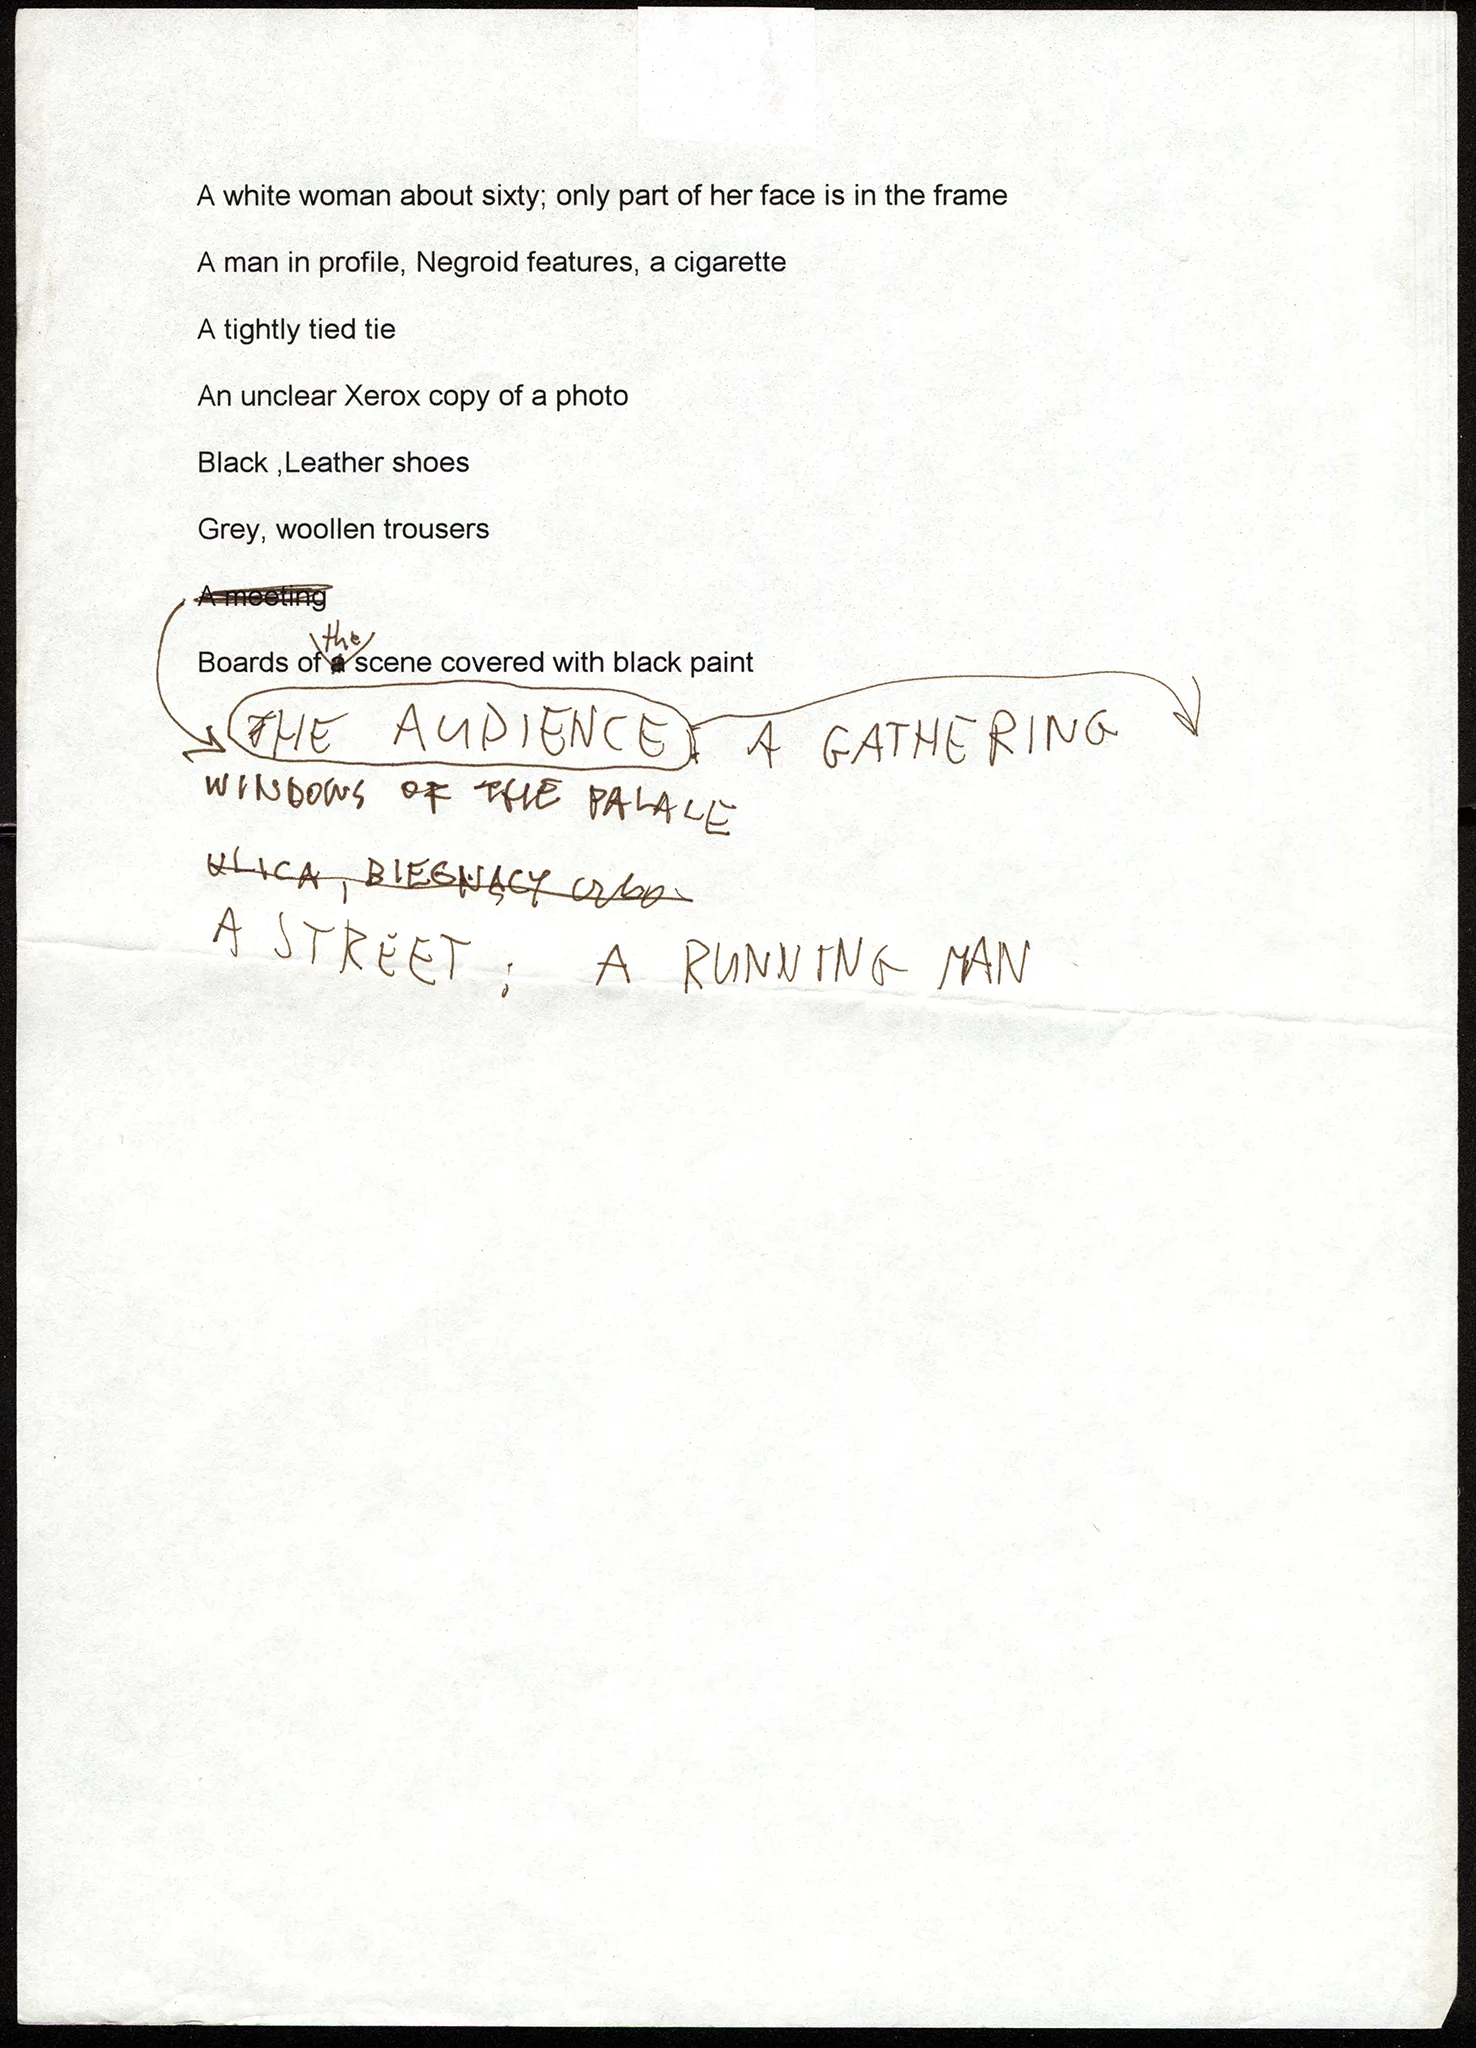 A white woman about sixty; only part of her face is in the frame
A man in profile, Negroid features, a cigarette
A tightly tied tie
An unclear Xerox copy of a photo
Black ,Leather shoes
Grey, woollen trousers
A meeting
the
Boards of a scene covered with black paint
THE AUDIENCE: A GATHERING
WINDOWS OF THE PALACE
ULICA, BIEGNĄCY
A STREET; A RUNNING MAN